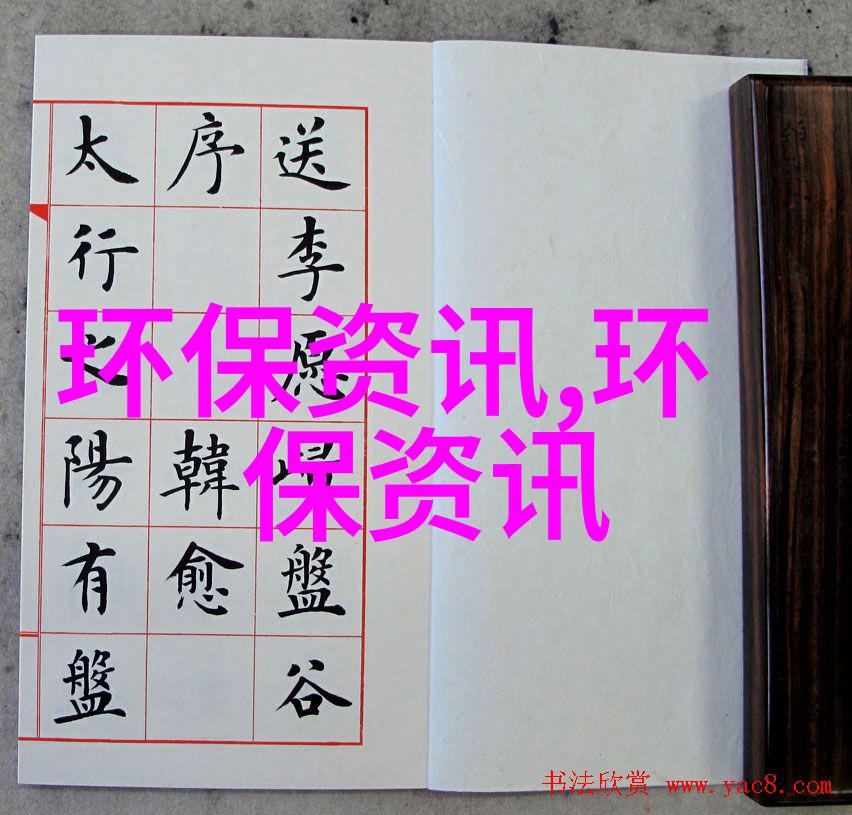 送李愿歸盤谷
序 韓愈
太行之陽有盤
环保资讯,环
保资讯
书法欣赏 www.yac8.com